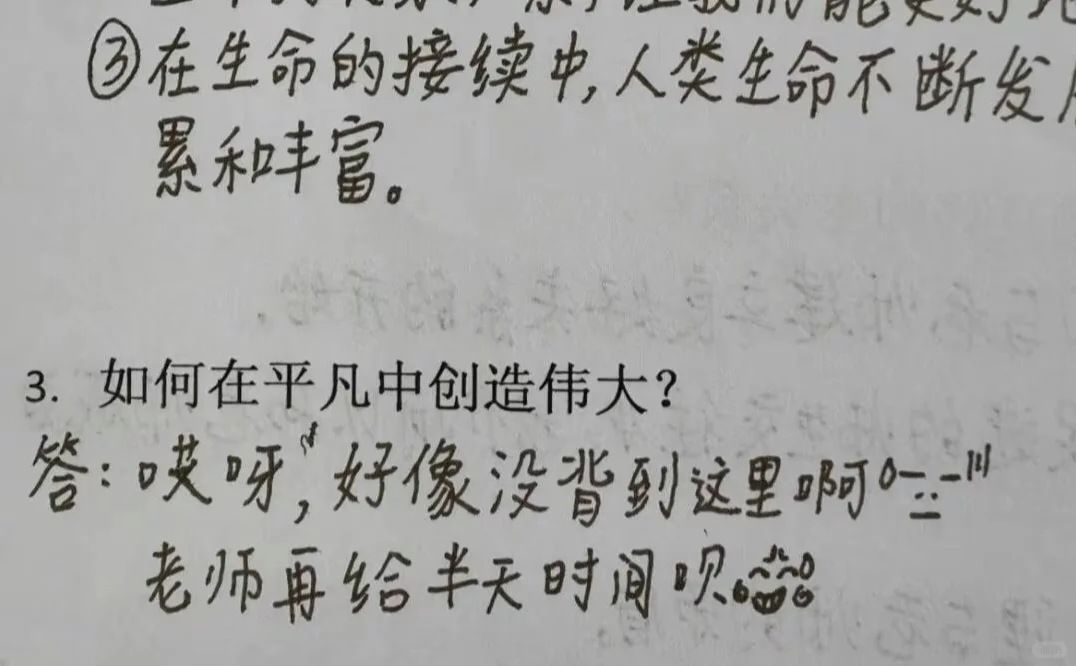 能更好地
③在生命的接续中,人类生命不断发
累和丰富。
3. 如何在平凡中创造伟大?
答:哎呀,好像没背到这里啊
老师再给半天时间呗